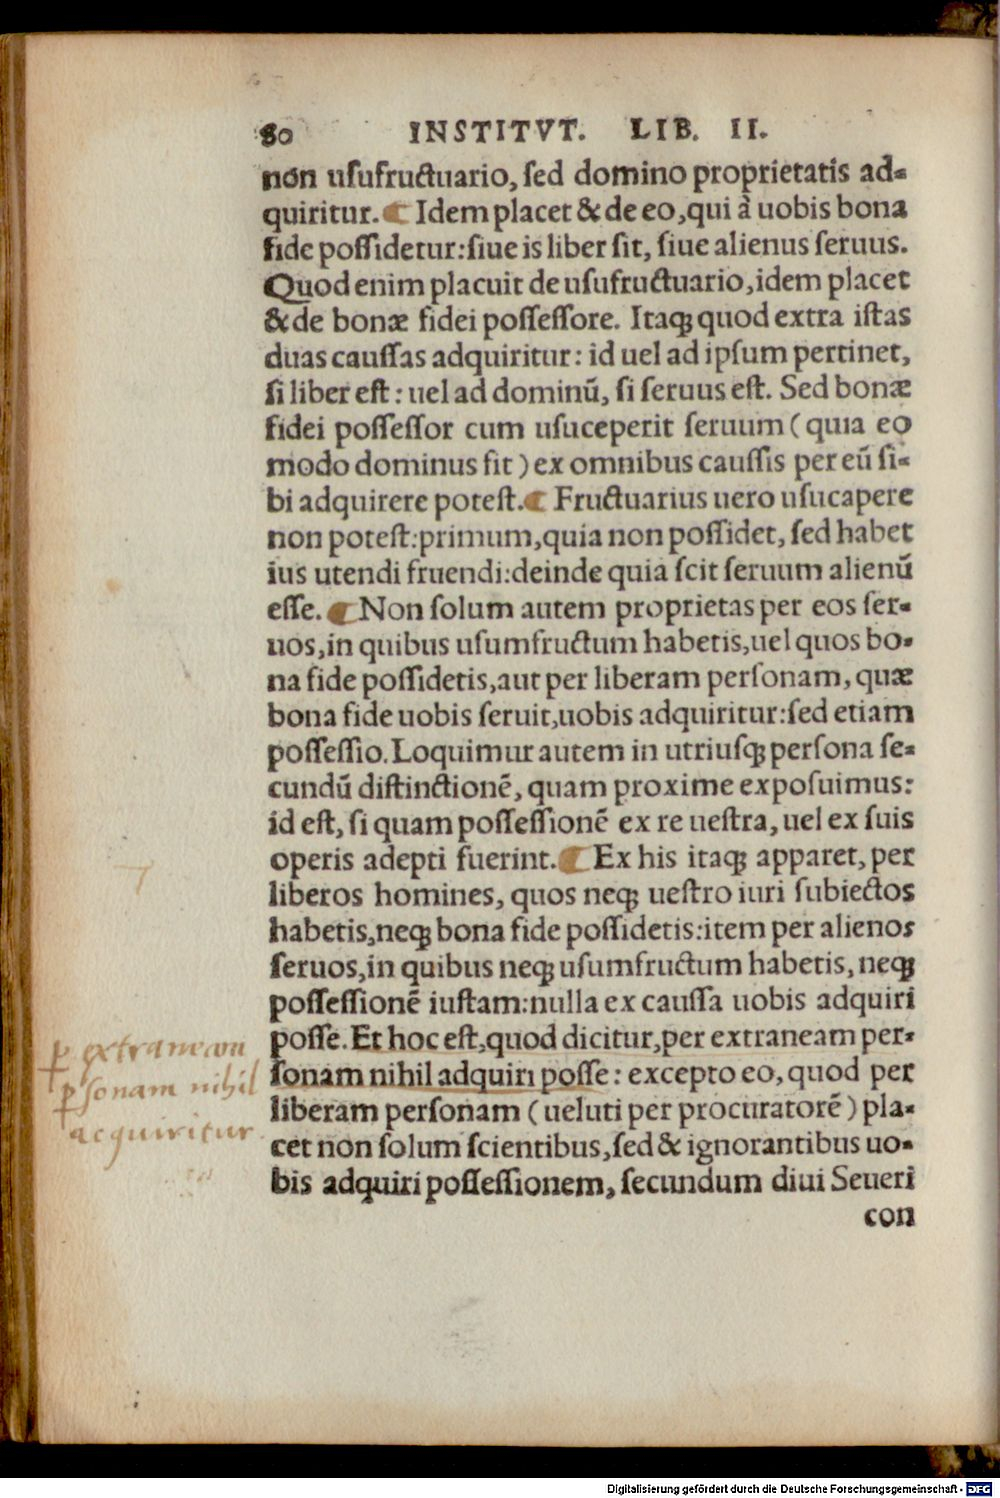 80 INSTITVT. LIB. II.
non usufructuario, sed domino proprietatis ad-
quiritur. ¶ Idem placet & de eo, qui à uobis bona
fide possidetur: siue is liber sit, siue alienus seruus.
Quod enim placuit de usufructuario, idem placet
& de bonæ fidei possessore. Itaq; quod extra istas
duas caussas adquiritur: id uel ad ipsum pertinet,
si liber est: uel ad dominũ, si seruus est. Sed bonæ
fidei possessor cum usuceperit seruum (quia eo
modo dominus fit) ex omnibus caussis per eũ si-
bi adquirere potest. ¶ Fructuarius uero usucapere
non potest: primum, quia non possidet, sed habet
ius utendi fruendi: deinde quia scit seruum alienũ
esse. ¶ Non solum autem proprietas per eos ser-
uos, in quibus usumfructum habetis, uel quos bo-
na fide possidetis, aut per liberam personam, quæ
bona fide uobis seruit, uobis adquiritur: sed etiam
possessio. Loquimur autem in utriusq; persona se-
cundũ distinctionẽ, quam proxime exposuimus:
id est, si quam possessionẽ ex re uestra, uel ex suis
operis adepti fuerint. ¶ Ex his itaq; apparet, per
liberos homines, quos neq; uestro iuri subiectos
habetis, neq; bona fide possidetis: item per alienos
seruos, in quibus neq; usumfructum habetis, neq;
possessionẽ iustam: nulla ex caussa uobis adquiri
posse. Et hoc est, quod dicitur, per extraneam per-
sonam nihil adquiri posse: excepto eo, quod per
liberam personam (ueluti per procuratorẽ) pla-
cet non solum scientibus, sed & ignorantibus uo-
bis adquiri possessionem, secundum diui Seueri
con
ꝑ extraneam
ꝑsonam nihil
acquiritur
Digitalisierung gefördert durch die Deutsche Forschungsgemeinschaft - DFG